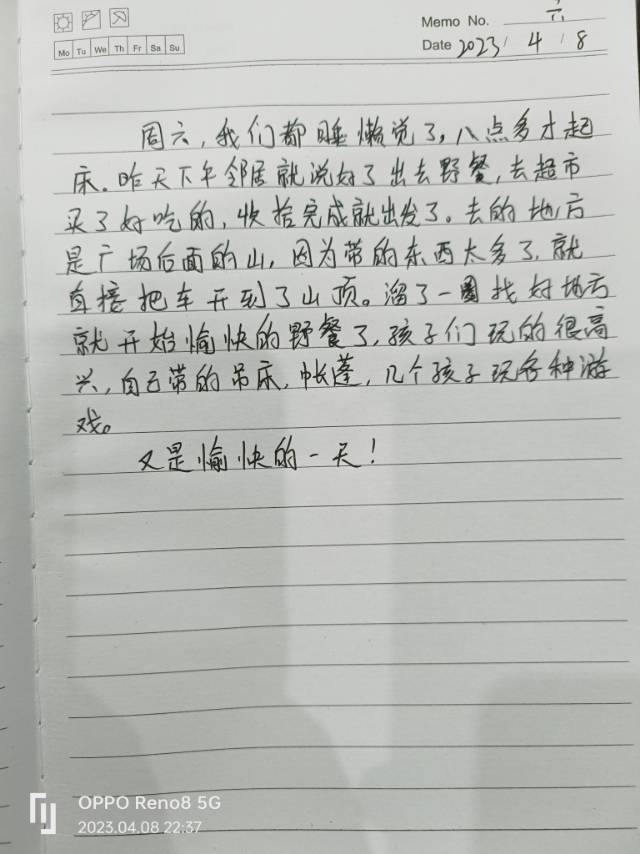 Memo No. 六
Mo Tu We Th Fr Sa Su
Date 2023/ 4 / 8
周六，我们都睡懒觉了，八点多才起
床。昨天下午邻居就说好了出去野餐，去超市
买了好吃的，收拾完成就出发了。去的地方
是广场后面的山，因为带的东西太多了，就
直接把车开到了山顶。溜了一圈找好地方
就开始愉快的野餐了，孩子们玩的很高
兴，自己带的吊床，帐蓬，几个孩子玩各种游
戏。
又是愉快的一天！
OPPO Reno8 5G
2023.04.08 22:37